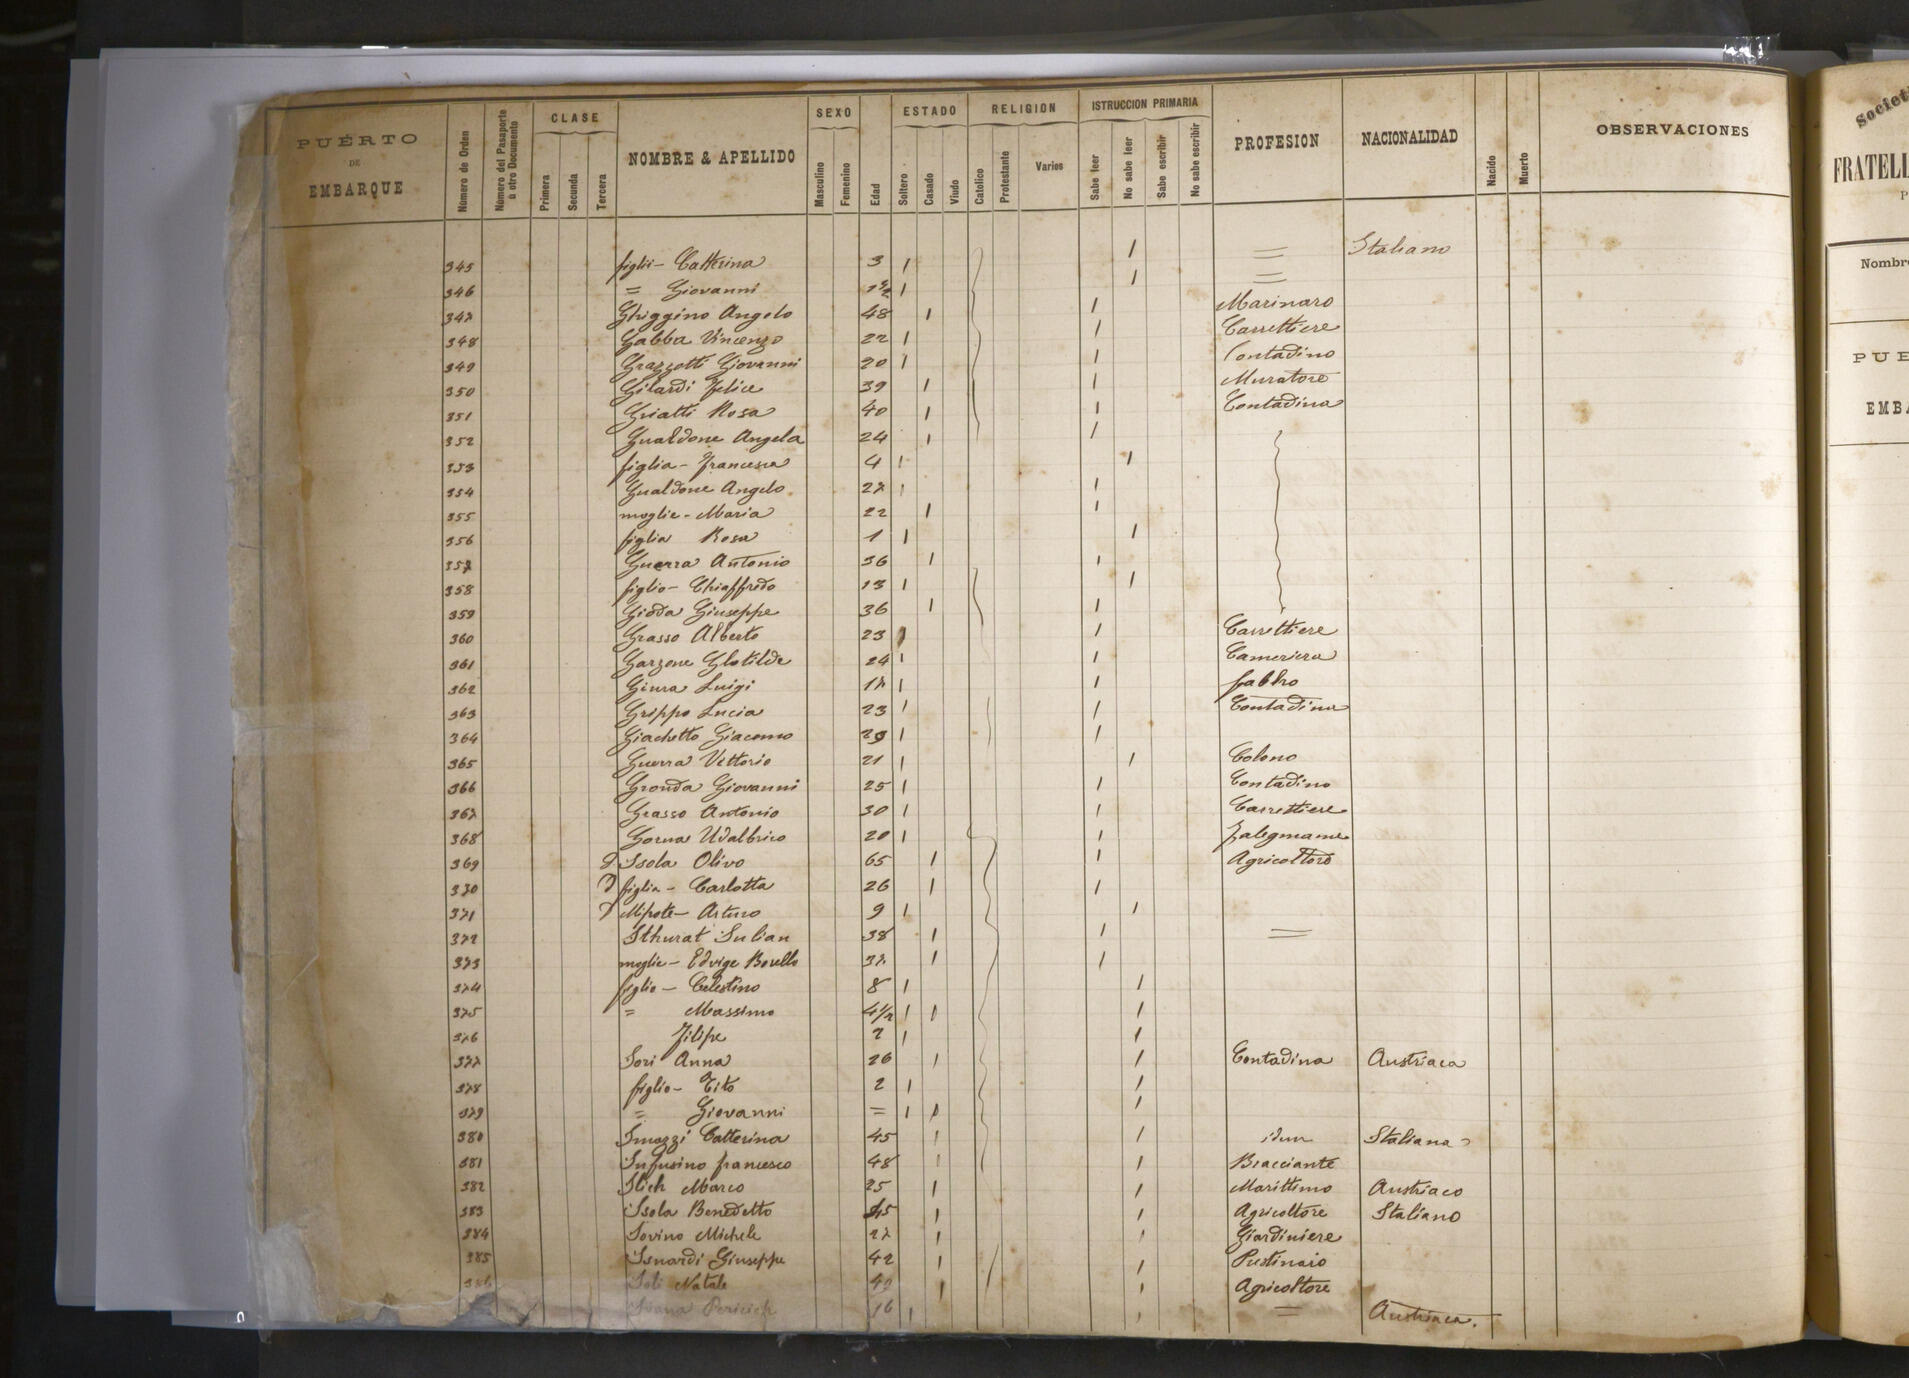 PUÉRTO DE EMBARQUE
Número de Orden
Número del Pasaporte ù otro Documento
CLASE
Primera
Secunda
Tercera
NOMBRE & APELLIDO
SEXO
Masculino
Femenino
Edad
ESTADO
Soltero
Casado
Viudo
RELIGION
Catolico
Protestante
Varies
ISTRUCCION PRIMARIA
Sabe leer
No sabe leer
Sabe escribir
No sabe escribir
PROFESION
NACIONALIDAD
Nacido
Muerto
OBSERVACIONES
345 figlii - Catterina 3 = Italiano
346 = Giovanni 1½ =
347 Ghiggino Angelo 48 Marinaro
348 Gabba Vincenzo 22 Carrettiere
349 Grazzotti Giovanni 20 Contadino
350 Gilardi Felice 39 Muratore
351 Griatti Rosa 40 Contadina
352 Gualdone Angela 24
353 figlia - Francesca 4
354 Gualdone Angelo 27
355 moglie - Maria 22
356 figlia Rosa 1
357 Guerra Antonio 36
358 figlio - Chiaffredo 13
359 Gioda Giuseppe 36
360 Grasso Alberto 23 Carrettiere
361 Garzone Glotilde 24 Cameriera
362 Giura Luigi 17 fabbro
363 Grippo Lucia 23 Contadina
364 Giachetto Giacomo 29
365 Guerra Vittorio 21 Colono
366 Gronda Giovanni 25 Contadino
367 Grasso Antonio 30 Carrettiere
368 Gorna Udalbrico 20 Falegname
369 Isola Olivo 65 Agricoltore
370 figlia - Carlotta 26
371 Nipote - Arturo 9
372 Ithurat Julian 38 =
373 moglie - Edvige Borello 37
374 figlio - Celestino 8
375 = Massimo 4½
376 Filipe 2
377 Iori Anna 26 Contadina Austriaca
378 figlio - Tito 2
379 = Giovanni =
380 Catterina 45 idem Italiana
381 Infusino francesco 48 Bracciante
382 Ilich Marco 25 Marittimo Austriaco
383 Isola Benedetto 45 Agricoltore Italiano
384 Iovino Michele 27 Giardiniere
385 Isnardi Giuseppe 42 Pastinaio
386 Natale Agricoltore
Ivana 16 = Austriaca.
Societ
FRATELL
P
Nombre
PUE
EMBA